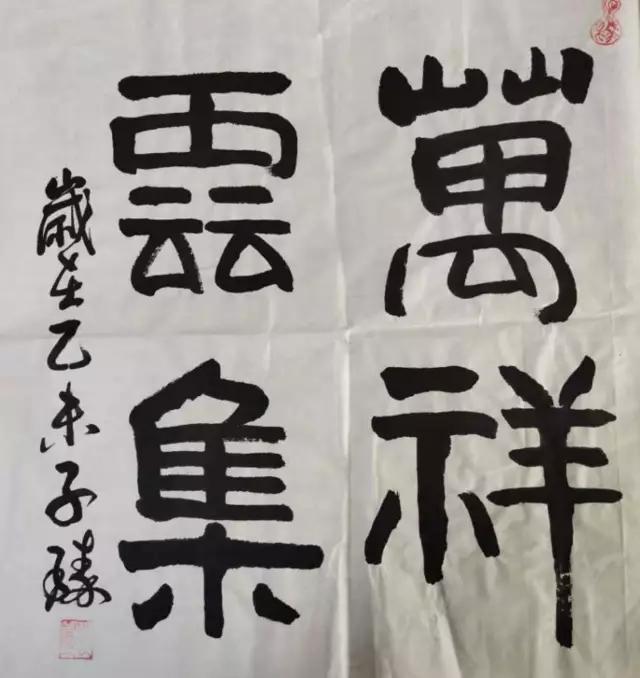 萬祥
雲集
歲在乙未子